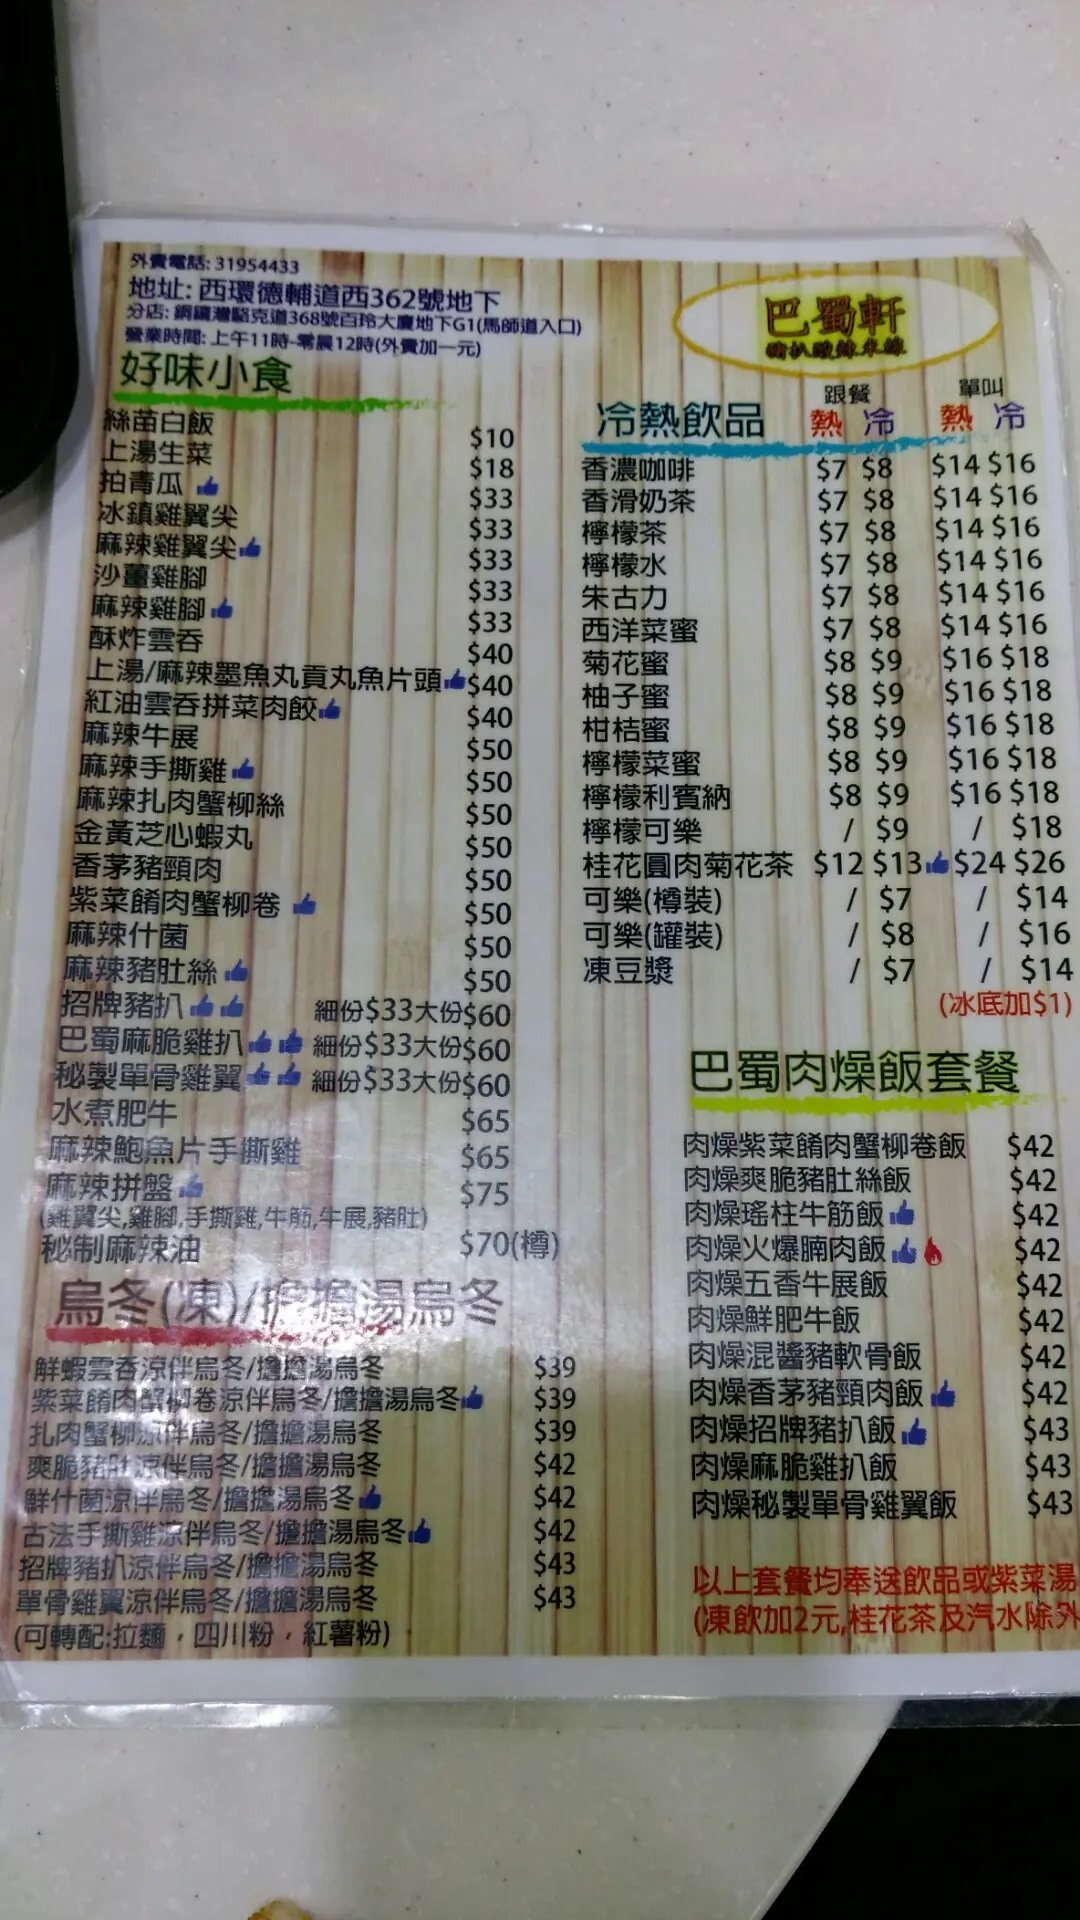 外賣電話: 31954433
地址: 西環德輔道西362號地下
分店: 銅鑼灣駱克道368號百玲大廈地下G1(馬師道入口)
營業時間: 上午11時-零晨12時(外賣加一元)
巴蜀軒
豬扒酸辣米線
好味小食
絲苗白飯 $10
上湯生菜 $18
拍青瓜 $33
冰鎮雞翼尖 $33
麻辣雞翼尖 $33
沙薑雞腳 $33
麻辣雞腳 $33
酥炸雲吞 $40
上湯/麻辣墨魚丸貢丸魚片頭 $40
紅油雲吞拼菜肉餃 $40
麻辣牛展 $50
麻辣手撕雞 $50
麻辣扎肉蟹柳絲 $50
金黃芝心蝦丸 $50
香茅豬頸肉 $50
紫菜餚肉蟹柳卷 $50
麻辣什菌 $50
麻辣豬肚絲 $50
招牌豬扒 細份$33大份$60
巴蜀麻脆雞扒 細份$33大份$60
秘製單骨雞翼 細份$33大份$60
水煮肥牛 $65
麻辣鮑魚片手撕雞 $65
麻辣拼盤 $75
(雞翼尖,雞腳,手撕雞,牛筋,牛展,豬肚)
秘制麻辣油 $70(樽)
烏冬(凍)/擔擔湯烏冬
鮮蝦雲吞涼伴烏冬/擔擔湯烏冬 $39
紫菜餚肉蟹柳卷涼伴烏冬/擔擔湯烏冬 $39
扎肉蟹柳涼伴烏冬/擔擔湯烏冬 $39
爽脆豬肚涼伴烏冬/擔擔湯烏冬 $42
鮮什菌涼伴烏冬/擔擔湯烏冬 $42
古法手撕雞涼伴烏冬/擔擔湯烏冬 $42
招牌豬扒涼伴烏冬/擔擔湯烏冬 $43
單骨雞翼涼伴烏冬/擔擔湯烏冬 $43
(可轉配:拉麵，四川粉，紅薯粉)
跟餐 單叫
冷熱飲品 熱 冷 熱 冷
香濃咖啡 $7 $8 $14 $16
香滑奶茶 $7 $8 $14 $16
檸檬茶 $7 $8 $14 $16
檸檬水 $7 $8 $14 $16
朱古力 $7 $8 $14 $16
西洋菜蜜 $7 $8 $14 $16
菊花蜜 $8 $9 $16 $18
柚子蜜 $8 $9 $16 $18
柑桔蜜 $8 $9 $16 $18
檸檬菜蜜 $8 $9 $16 $18
檸檬利賓納 $8 $9 $16 $18
檸檬可樂 / $9 / $18
桂花圓肉菊花茶 $12 $13 $24 $26
可樂(樽裝) / $7 / $14
可樂(罐裝) / $8 / $16
凍豆漿 / $7 / $14
(冰底加$1)
巴蜀肉燥飯套餐
肉燥紫菜餚肉蟹柳卷飯 $42
肉燥爽脆豬肚絲飯 $42
肉燥瑤柱牛筋飯 $42
肉燥火爆腩肉飯 $42
肉燥五香牛展飯 $42
肉燥鮮肥牛飯 $42
肉燥混醬豬軟骨飯 $42
肉燥香茅豬頸肉飯 $42
肉燥招牌豬扒飯 $43
肉燥麻脆雞扒飯 $43
肉燥秘製單骨雞翼飯 $43
以上套餐均奉送飲品或紫菜湯
(凍飲加2元,桂花茶及汽水除外